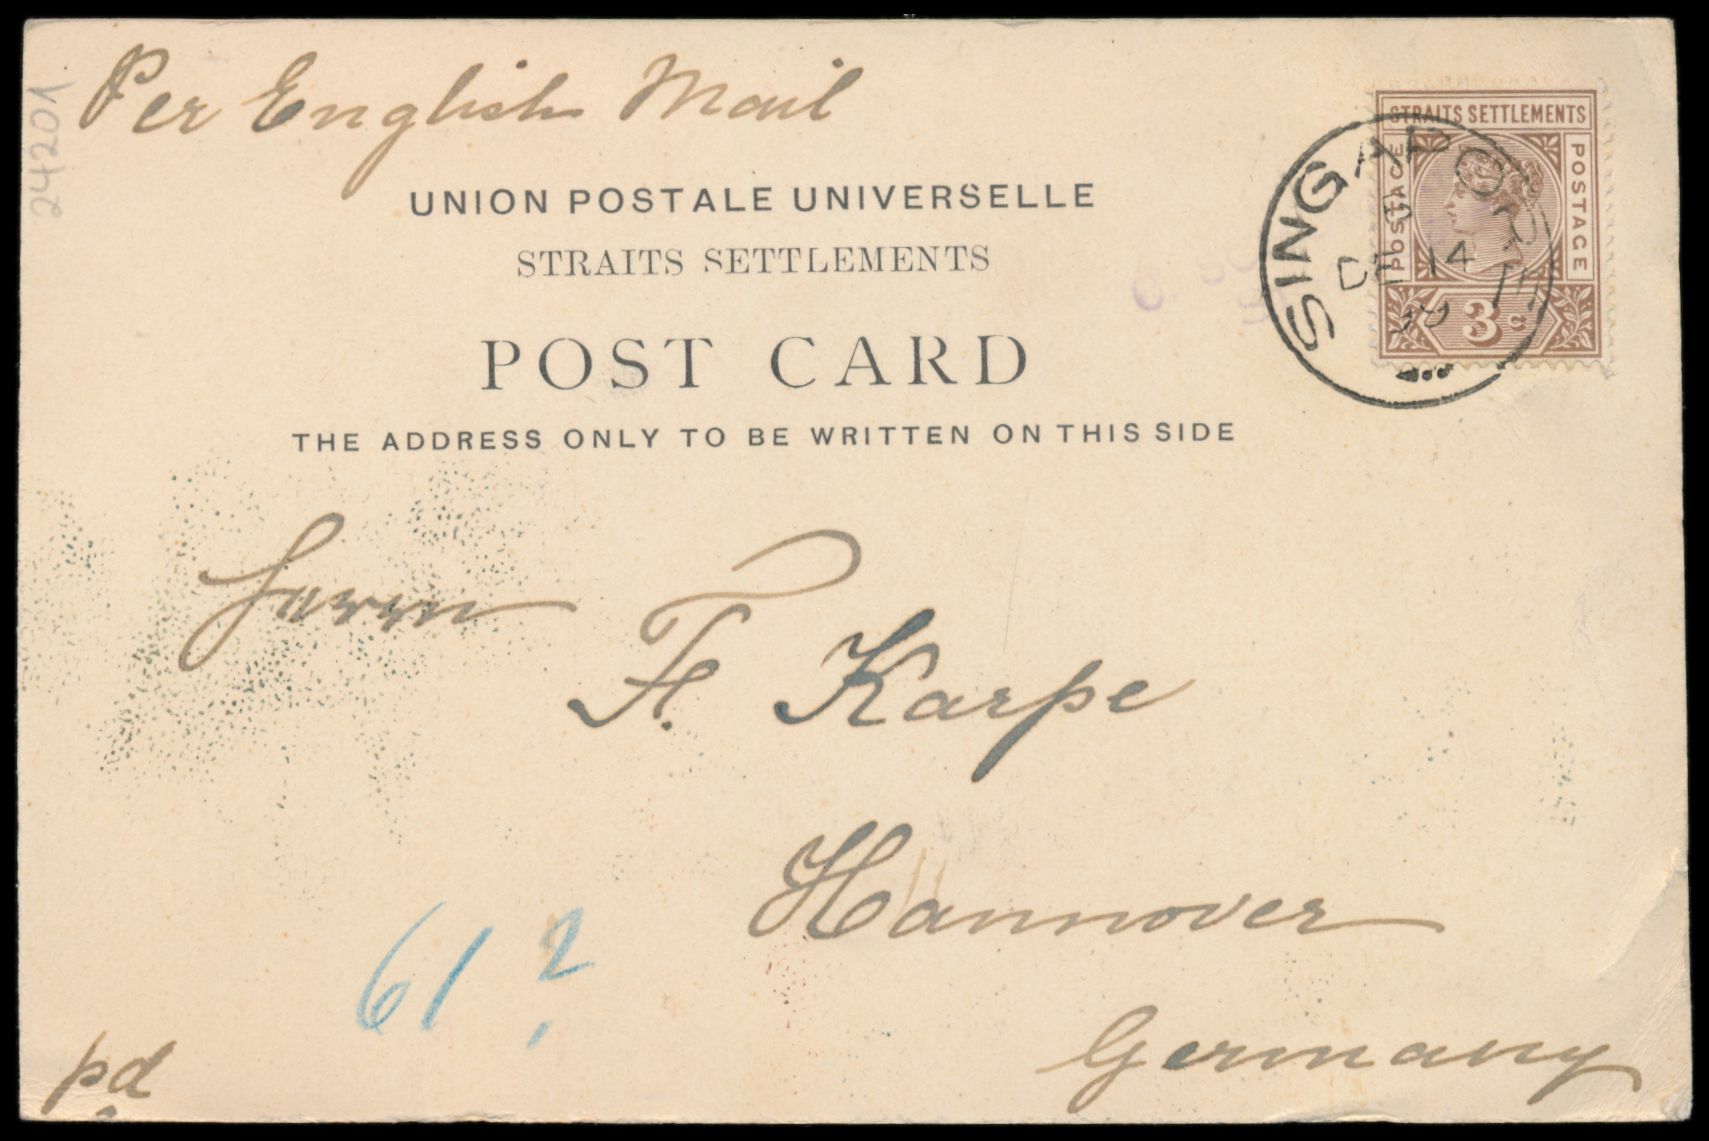 24201
Per English Mail
UNION POSTALE UNIVERSELLE
STRAITS SETTLEMENTS
POST CARD
THE ADDRESS ONLY TO BE WRITTEN ON THIS SIDE
STRAITS SETTLEMENTS
POSTAGE
POSTAGE
3 C
SINGAPORE
DE 14
99
Herrn
F. Karpe
Hannover
Germany
61 ?
pd